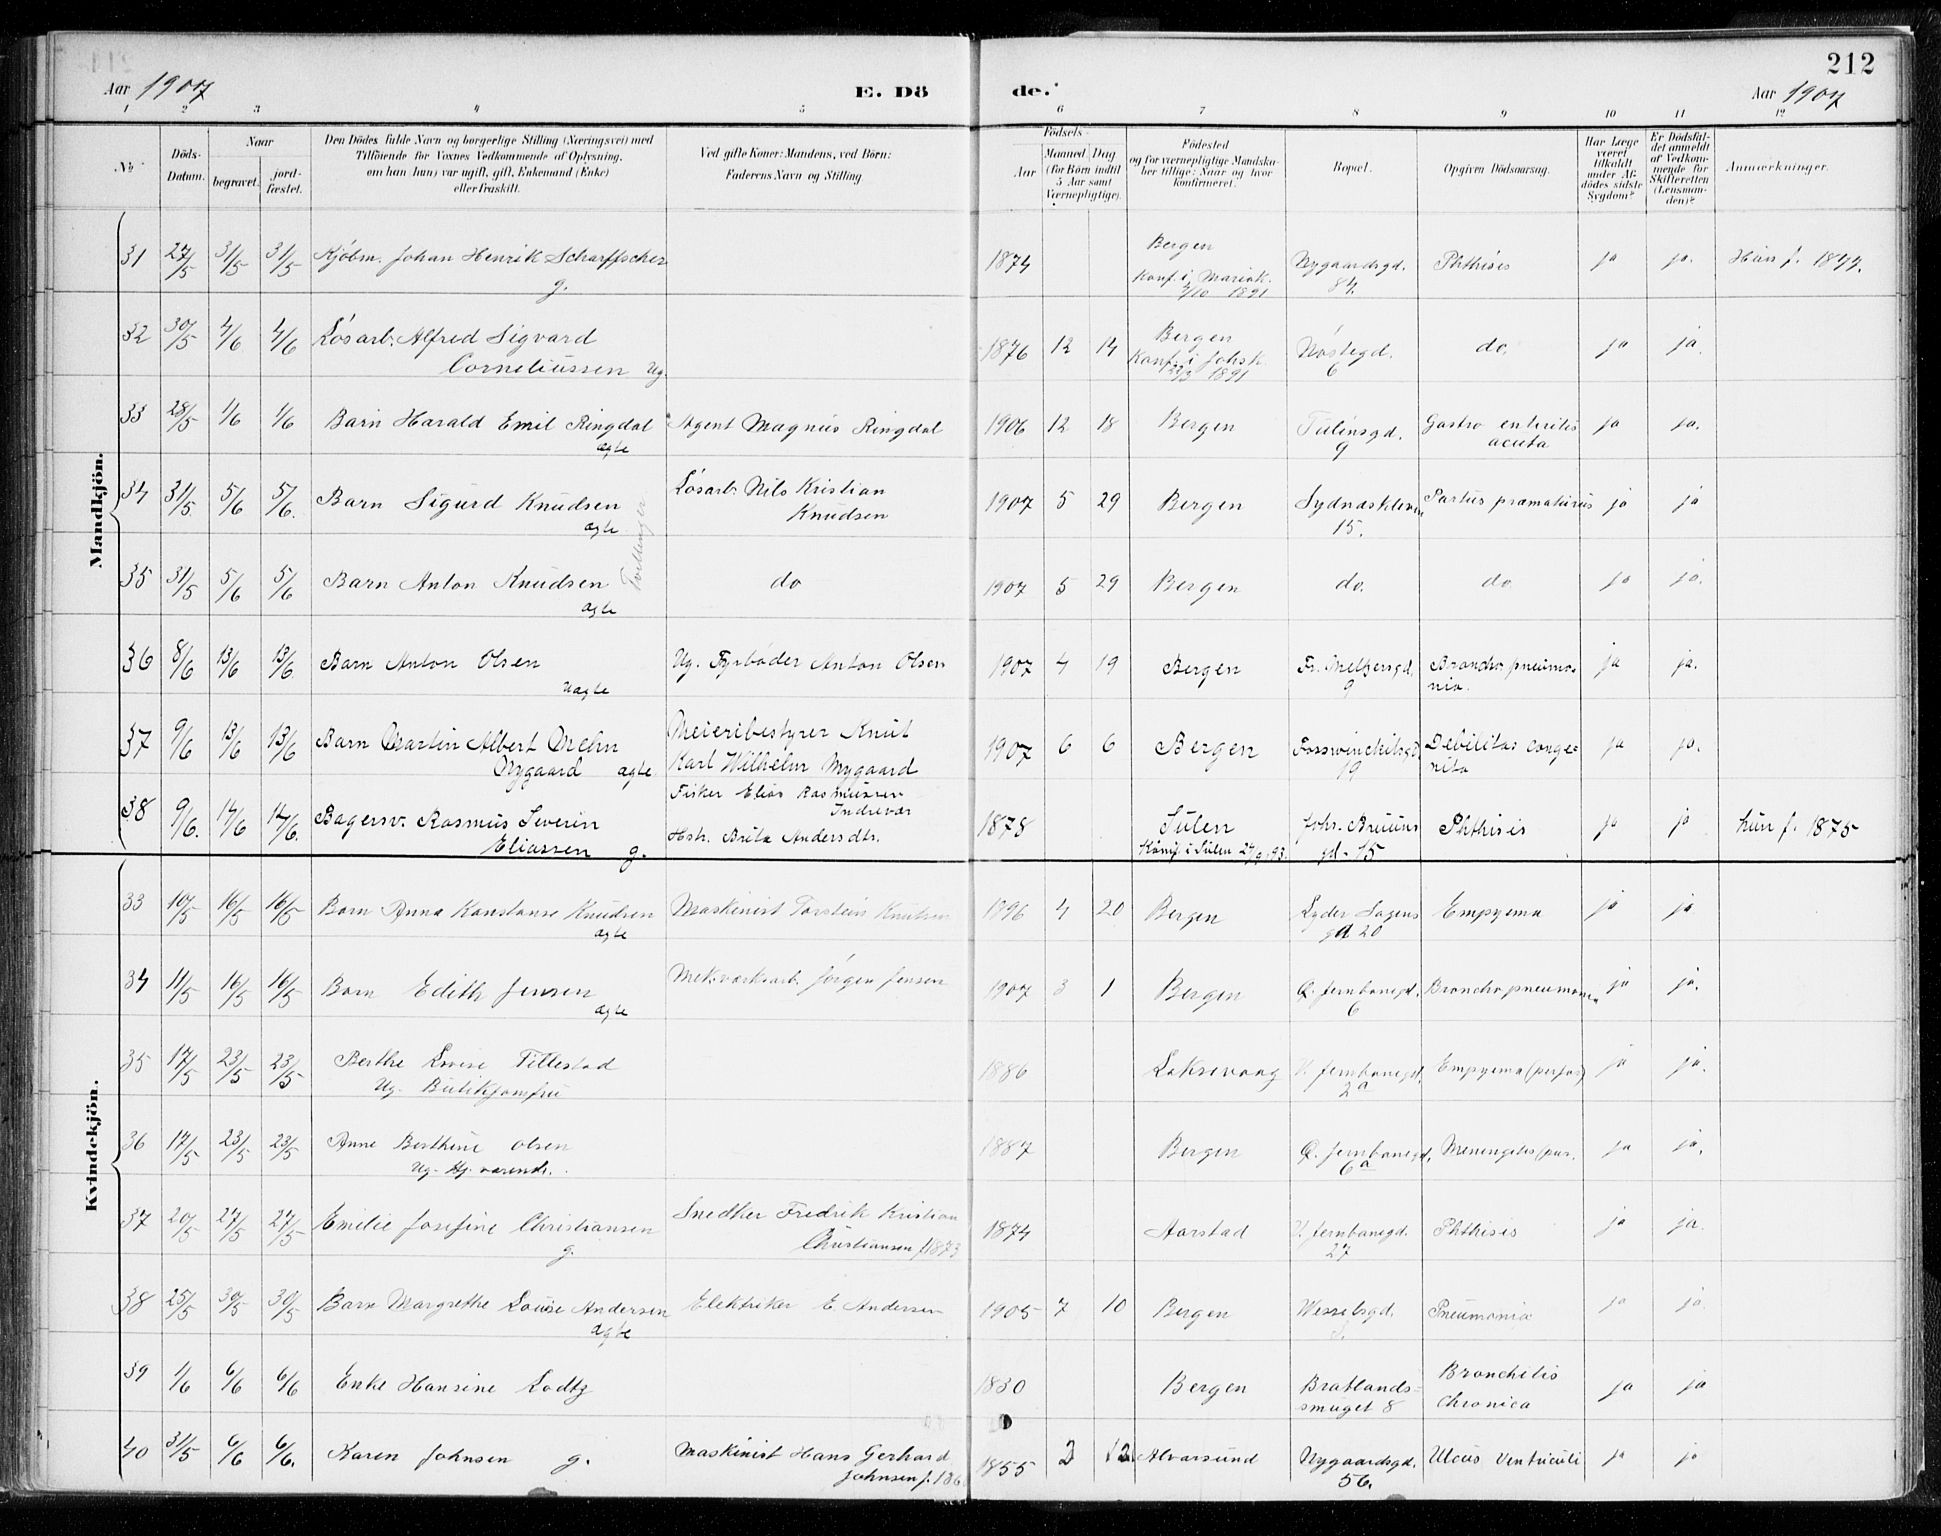 212
Aar 1907
E. Dö
de.
Aar 1907
1 2 3 4 5 6 7 8 9 10 11 12
No
Döds-Datum.
Naar
begravet.
jord-fæstet.
Den Dödes fulde Navn og borgerlige Stilling (Næringsvei) med
Tilföiende for Voxnes Vedkommende af Oplysning,
om han (hun) var ugift, gift, Enkemand (Enke)
eller fraskilt.
Ved gifte Koner: Mandens, ved Börn:
Faderens Navn og Stilling.
Födsels-
Aar
Maaned Dag
(for Börn indtil
5 Aar samt
Værnepligtige).
Födested
og for værnepligtige Mandska-
ber tillige: Naar og hvor
konfirmeret.
Bopæl.
Opgiven Dödsaarsag.
Har Læge
været
tilkaldt
under Af-
dödes sidste
Sygdom?
Er Dödsfal-
det anmeldt
af Vedkom-
mende for
Skifteretten
(Lensman-
den)?
Anmærkninger.
Mandkjön.
31 27/5 31/5 31/5 Kjøbm. Johan Henrik Scharffscher g. 1874 Bergen Konf. i Mariak. 4/10 1891 Nygaardsgd. 84. Phthisis ja ja. Hun f. 1877.
32 30/5 4/6 4/6 Løsarb. Alfred Sigvard Corneliussen Ug. 1876 12 14 Bergen Konf. i Johsk. 22/3 1891 Nøstegd. 6 do. ja ja.
33 28/5 1/6 1/6 Barn Harald Emil Ringdal ægte Agent Magnus Ringdal 1906 12 18 Bergen Tulinsgd. 9 Gastro enteritis acuta ja ja.
34 31/5 5/6 5/6. Barn Sigurd Knudsen ægte Tvillinger Løsarb. Nils Kristian Knudsen 1907 5 29 Bergen Sydnæskleven 15. Partus præmaturus ja ja
35 31/5 5/6 5/6 Barn Anton Knudsen ægte do 1907 5 29 Bergen do. do ja ja.
36 8/6 13/6 13/6. Barn Anton Olsen uægte Ug. Fyrbøder Anton Olsen 1907 4 19 Bergen Fr. Meltzersgd. 9 Broncho pneumo- nia. ja ja.
37 9/6 13/6 13/6 Barn Martin Albert Mehn Nygaard ægte Meieribestyrer Knut Karl Wilhelm Nygaard 1907 6 6 Bergen Fosswinckelsgd. 19 Debilitas conge- nita ja ja.
38 9/6. 14/6 14/6. Bagersv. Rasmus Severin Eliassen g. Fisker Elias Rasmussen Indrevær Hstr. Brita Andersdtr. 1878 Sulen Konf. i Sulen 24/9 93. Joh. Bruuns gd. 15 Phthisis ja ja hun f. 1875
Kvindekjön.
33 10/5 16/5 16/5 Barn Anna Konstanse Knudsen ægte Maskinist Torstein Knutsen 1896 4 20 Bergen Lyder Sagens gd 20 Empyema ja ja
34 11/5 16/5 16/5 Barn Edith Jensen ægte Mek.værksarb. Jørgen Jensen 1907 3 1 Bergen Ø. Jernbanegd. 6 Broncho pneumonia ja ja.
35 17/5 23/5 23/5 Berthe Lovise Tillestad Ug. Butikjomfru 1886 Laksevaag V. Jernbanegd. 2a Empyema (perfor) ja ja.
36 17/5 23/5 23/5 Anne Berthine Olsen Ug. Hj. værende. 1887 Bergen Ø. Jernbanegd. 6a Meningitis (pur. ja ja.
37 20/5 27/5 27/5 Emilie Josefine Christiansen g. Snedker Fredrik Kristian Christiansen f. 1873 1874 Aarstad V. Jernbanegd. 27 Phthisis ja ja.
38 25/5 30/5 30/5 Barn Margrethe Louise Andersen ægte Elektriker E. Andersen 1905 7 10 Bergen Wesselsgd. Pneumonia ja ja.
39 1/6 6/6 6/6 Enke Hansine Lodtz 1830 Bergen Bratlands- smuget 8 Bronchitis Chronica ja ja
40 31/5 6/6 6/6. Karen Johnsen g. Maskinist Hans Gerhard Johnsen f. 186 1855 2 12 Alvarsund Nygaardsgd. 56. Ulcus Ventriculi ja ja